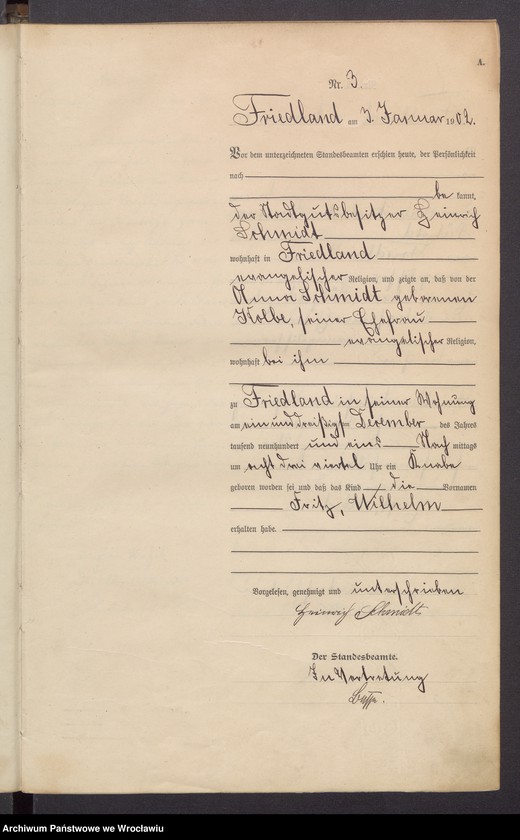 A.
Nr. 3.
Friedland am 3. Januar 1902.
Vor dem unterzeichneten Standesbeamten erschien heute, der Persönlichkeit
nach
be kannt,
der Stadtgutsbesitzer Heinrich
Schmidt
wohnhaft in Friedland
evangelischer Religion, und zeigte an, daß von der
Anna Schmidt geborenen
Kolbe, seiner Ehefrau
evangelischer Religion,
wohnhaft bei ihm
zu Friedland in seiner Wohnung
am ein und dreißigsten Dezember des Jahres
tausend neunhundert und eins Nach mittags
um acht drei viertel Uhr ein Knabe
geboren worden sei und daß das Kind die Vornamen
Fritz, Wilhelm
erhalten habe.
Vorgelesen, genehmigt und unterschrieben
Heinrich Schmidt
Der Standesbeamte.
In Vertretung
Archiwum Państwowe we Wrocławiu